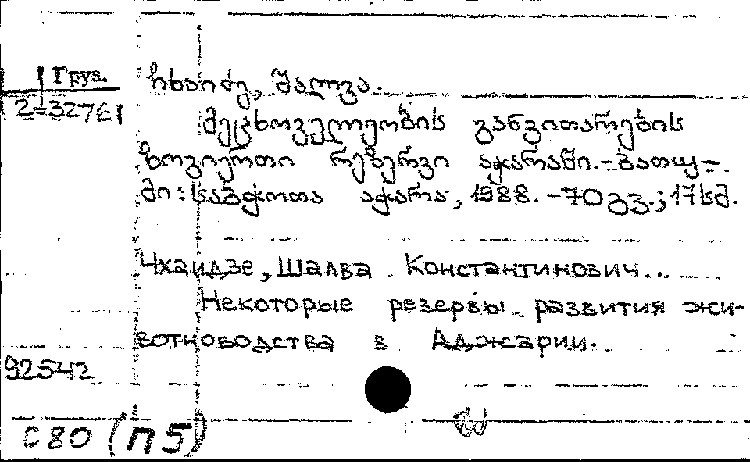 Груз.
2-32761
ჩხაიძე, შალვა.
მეცხოველეობის განვითარების
ზოგიერთი რეზერვი აჭარაში. - ბათუ-
მი : საბჭოთა აჭარა, 1988. - 70 გვ. ; 17 სმ.
Чхаидзе, Шалва Константинович..
Некоторые резервы развития жи-
вотноводства в Аджарии.
92542
с80 (п5)